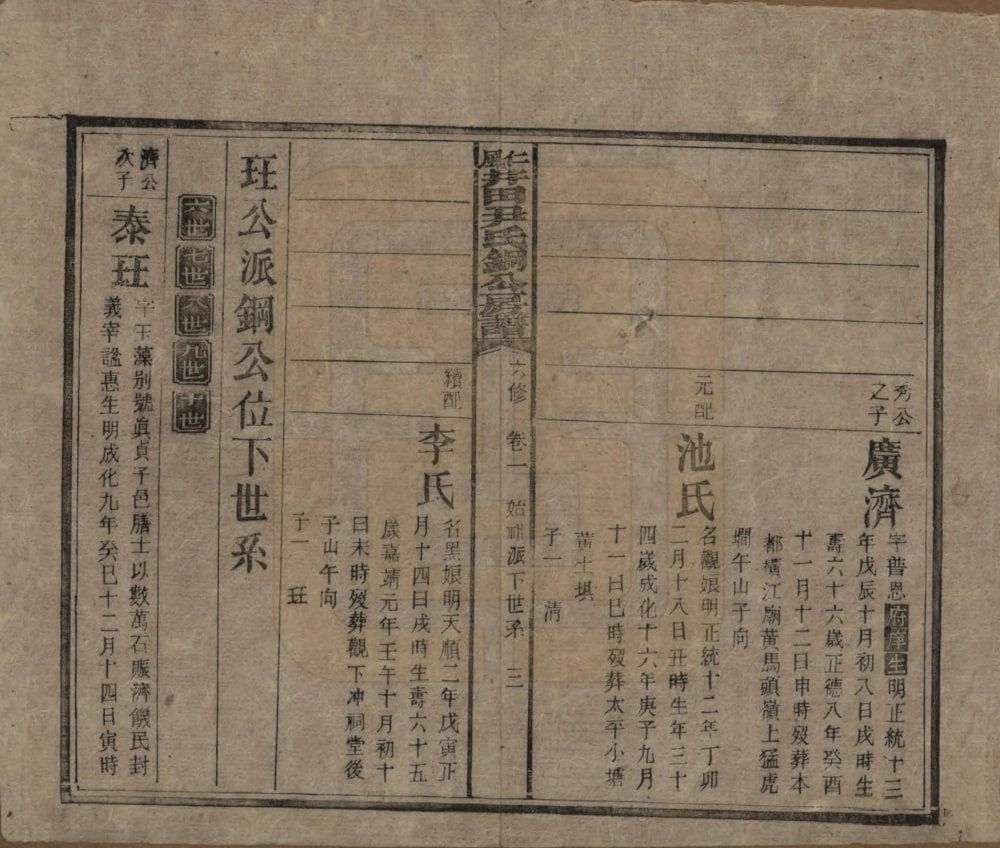 秀公
之子
廣濟
字普恩府庠生明正統十三
年戊辰十月初八日戌時生
壽六十六歲正德八年癸酉
十一月十二日申時歿葬本
都橫江廟黃馬頭嶺上猛虎
跳澗午山子向
元配
池氏
名觀娘明正統十二年丁卯
二月十八日丑時生年三十
四歲成化十六年庚子九月
十一日巳時歿葬太平小塘
黃土塸
子一 清
仁風井田尹氏鋼公房譜
六修 卷一 始祖派下世系 三
續配
李氏
名黑娘明天順二年戊寅正
月十四日戌時生壽六十五
歲嘉靖元年壬午十月初十
日未時歿葬觀下冲祠堂後
子山午向
子一 玨
玨公派鋼公位下世系
六世 七世 八世 九世 十世
濟公
次子
泰玨
字玉藻別號眞貞子邑膳士以數萬石賑濟饑民封
義宰謚惠生明成化九年癸巳十二月十四日寅時